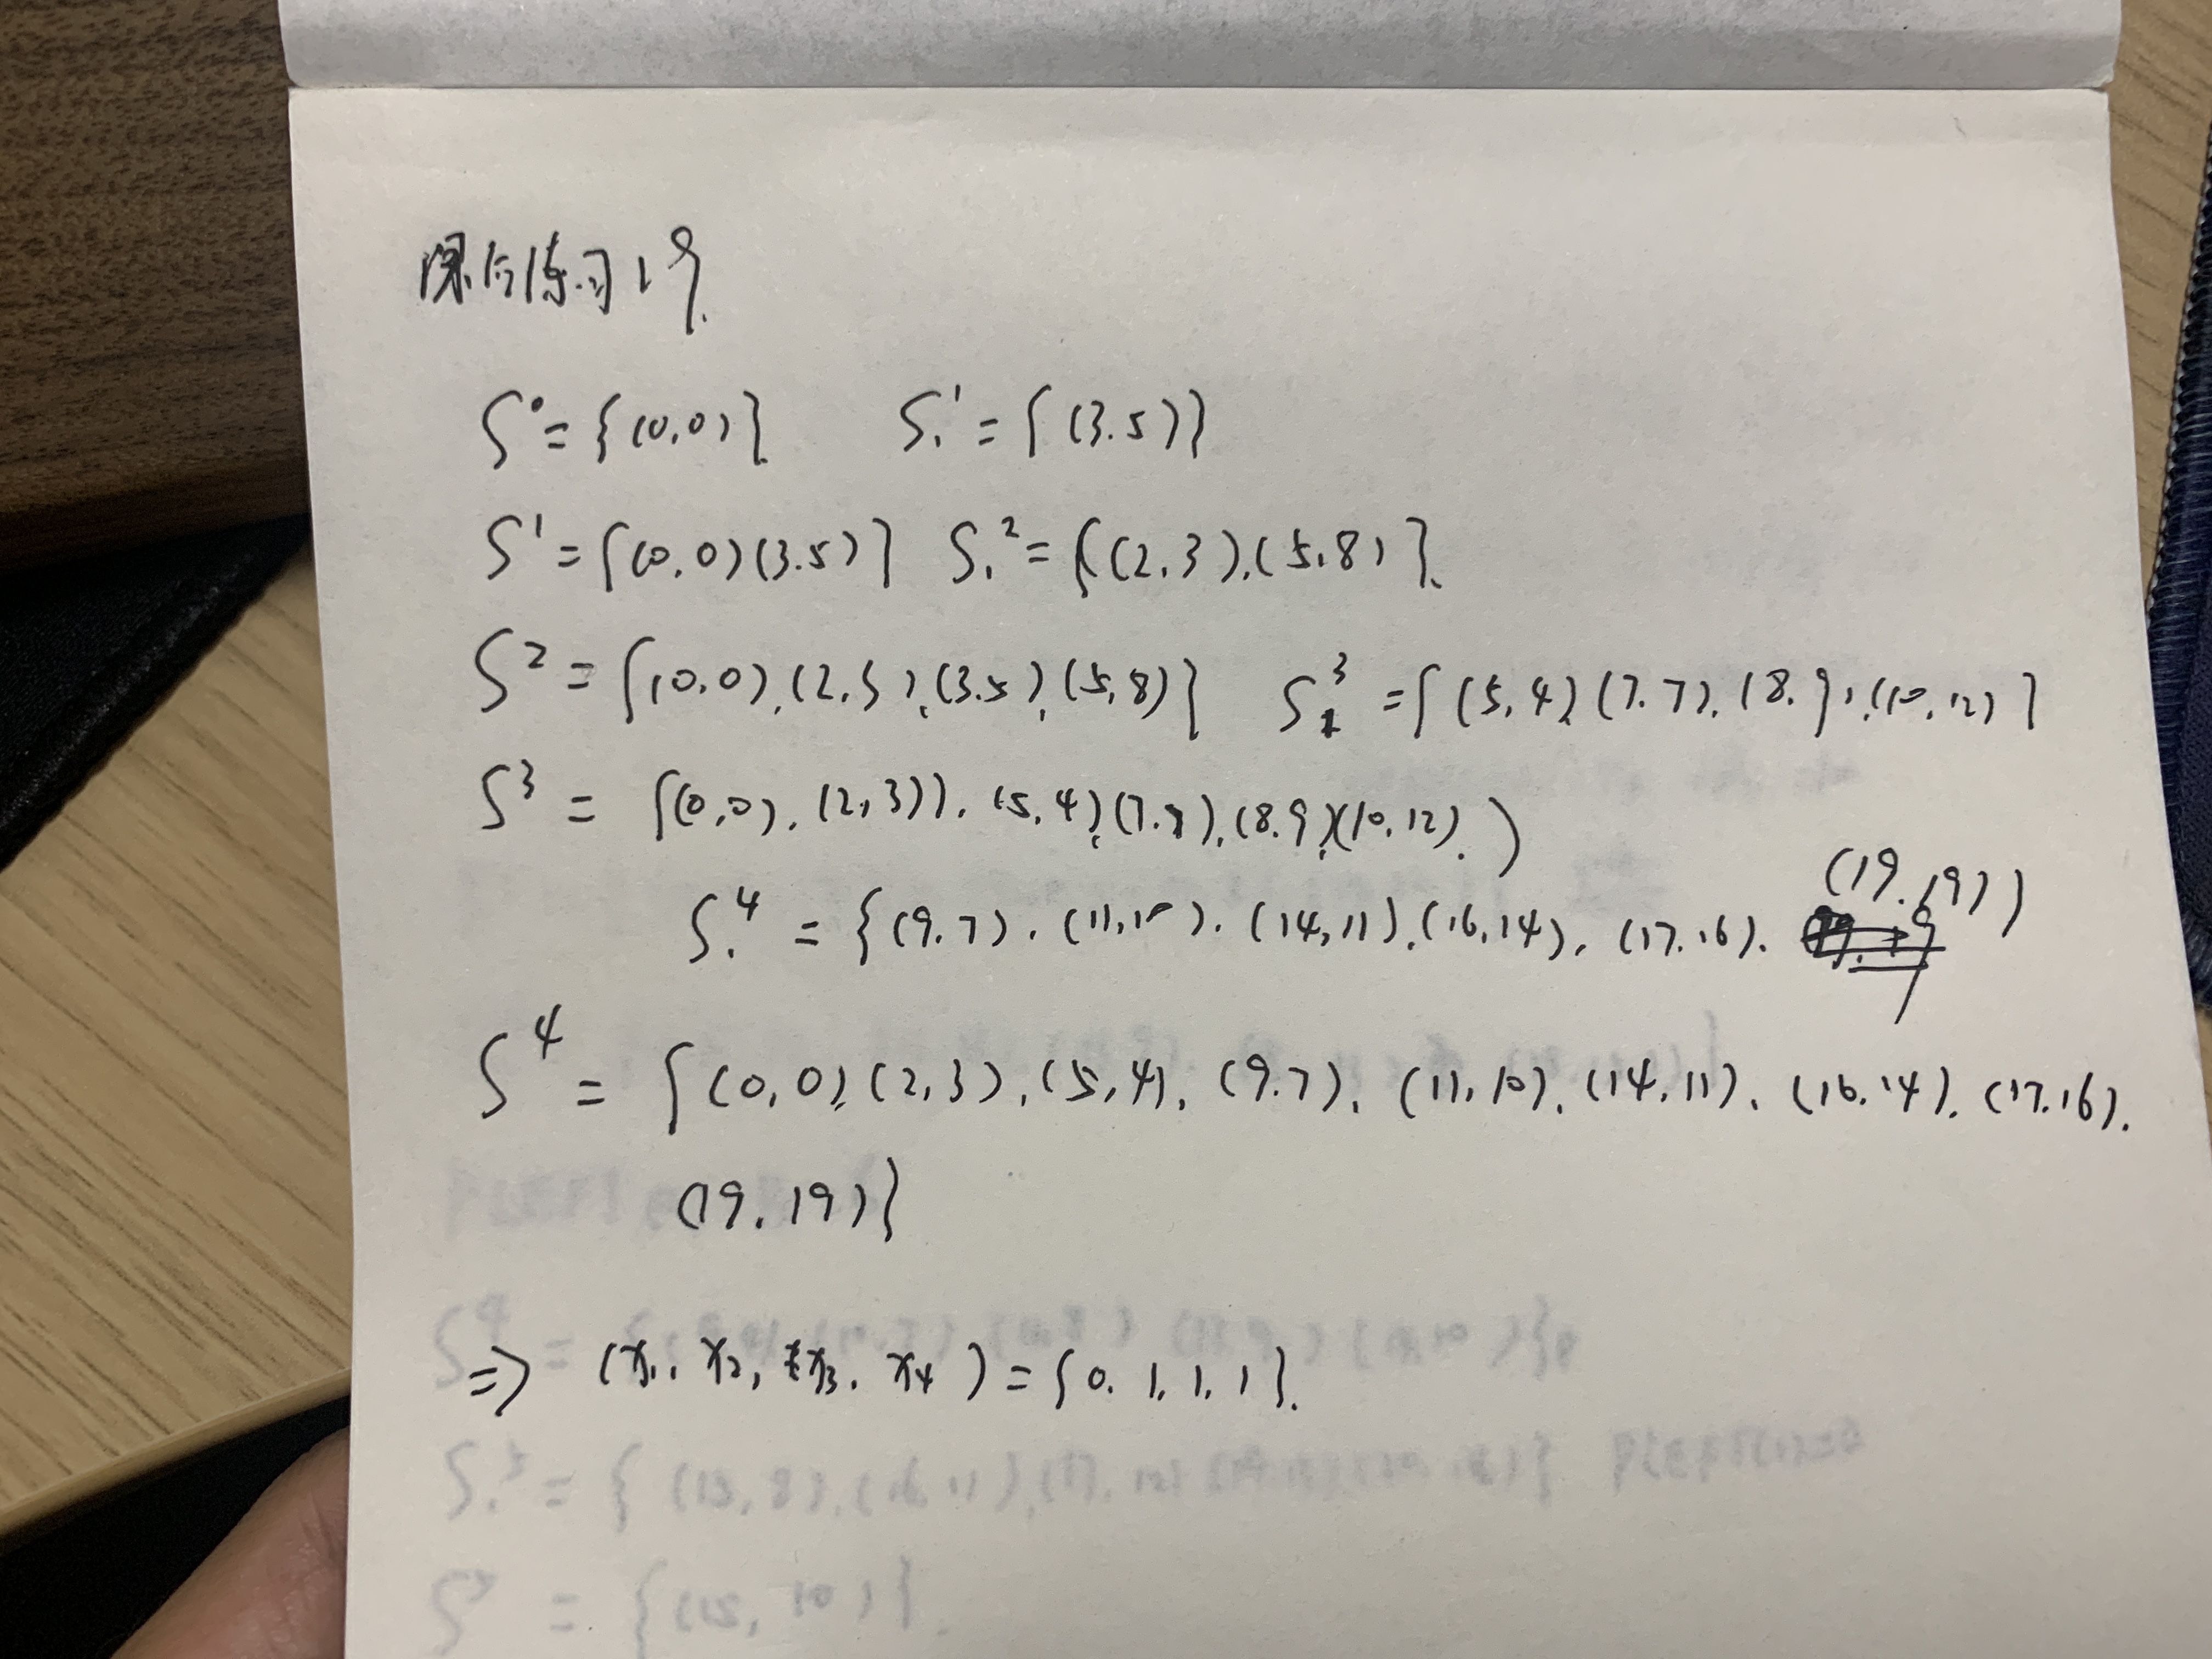 课后练习19.
S⁰ = {(0,0)} S₁¹ = {(3.5)}
S¹ = {(0,0)(3.5)} S₁² = {(2,3).(5,8)}.
S² = {(0,0).(2,3).(3.5).(5,8)} S₁³ = {(5,4)(7.7).(8.9).(10,12)}
S³ = {(0,0).(2,3)).(5,4)(7.7).(8.9)(10,12).)
S₁⁴ = {(9.7).(11,10).(14,11).(16,14).(17.16).(19.19))
S⁴ = {(0,0)(2,3).(5,4).(9.7).(11,10).(14,11).(16.14).(17.16).
(19.19)}
=> (x₁. x₂, x₃. x₄) = {0. 1. 1. 1}.